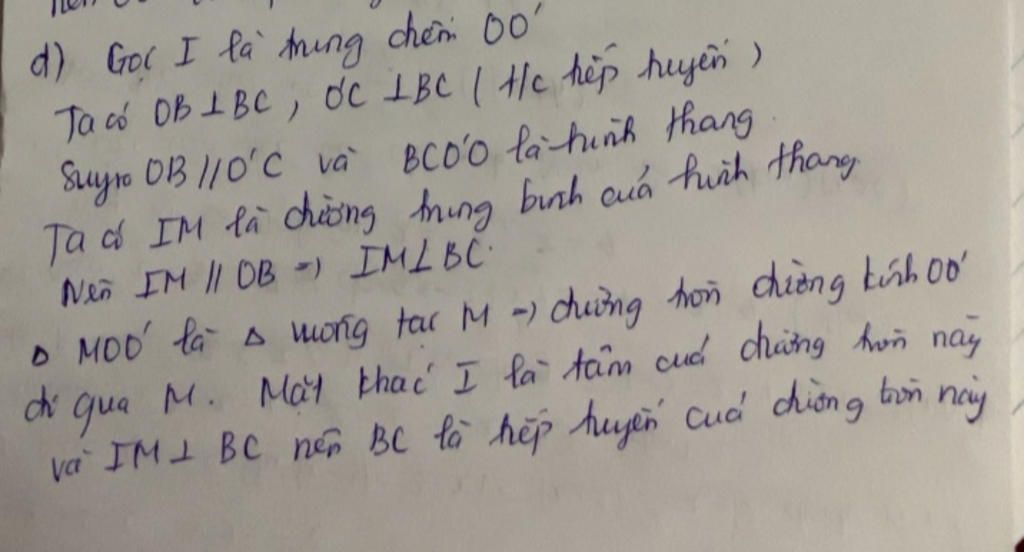 d) Gọi I là trung điểm OO'
Ta có OB ⊥ BC, O'C ⊥ BC ( t/c tiếp tuyến )
Suy ra OB // O'C và BCO'O là hình thang.
Ta có IM là đường trung bình của hình thang
Nên IM // OB => IM ⊥ BC.
Δ MOO' là Δ vuông tại M -> đường tròn đường kính OO'
đi qua M. Mặt khác I là tâm của đường tròn này
và IM ⊥ BC nên BC là tiếp tuyến của đường tròn này